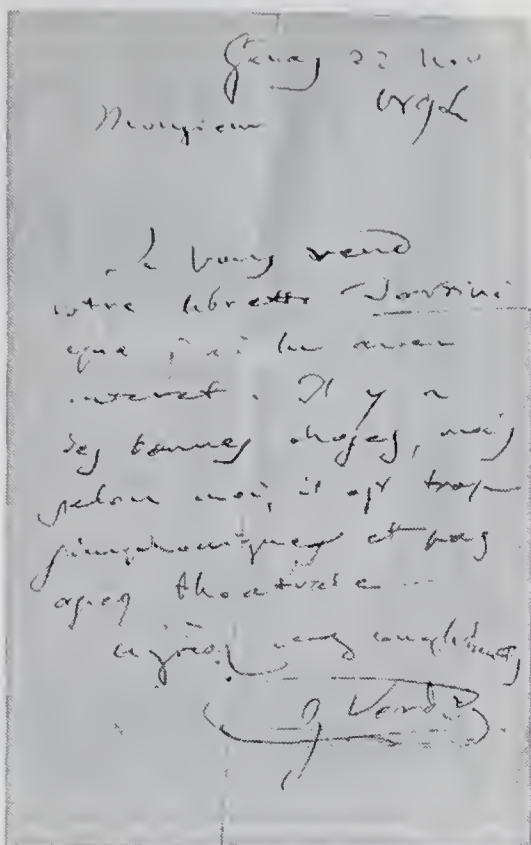 Gênes 22 Nov
Monsieur
Je vous rend
votre libretto
que j'ai lu avec
interet. Il y a
des bonnes choses, mais
selon moi, it est trop
simphonique et pas
assez theatrale ...
agreez mes compliments
G Verdi